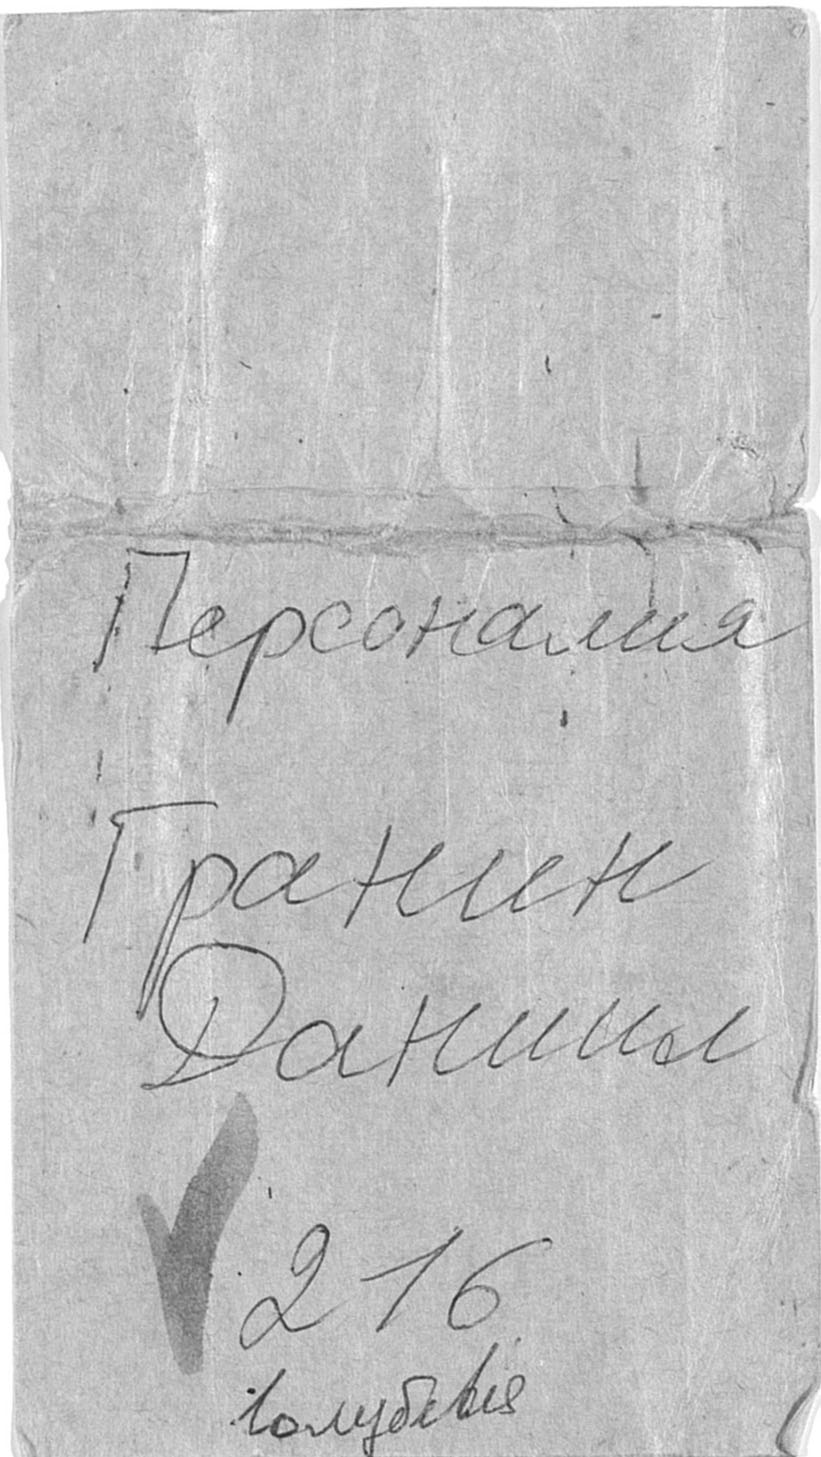 Персоналия
Гранин
Даниил
216